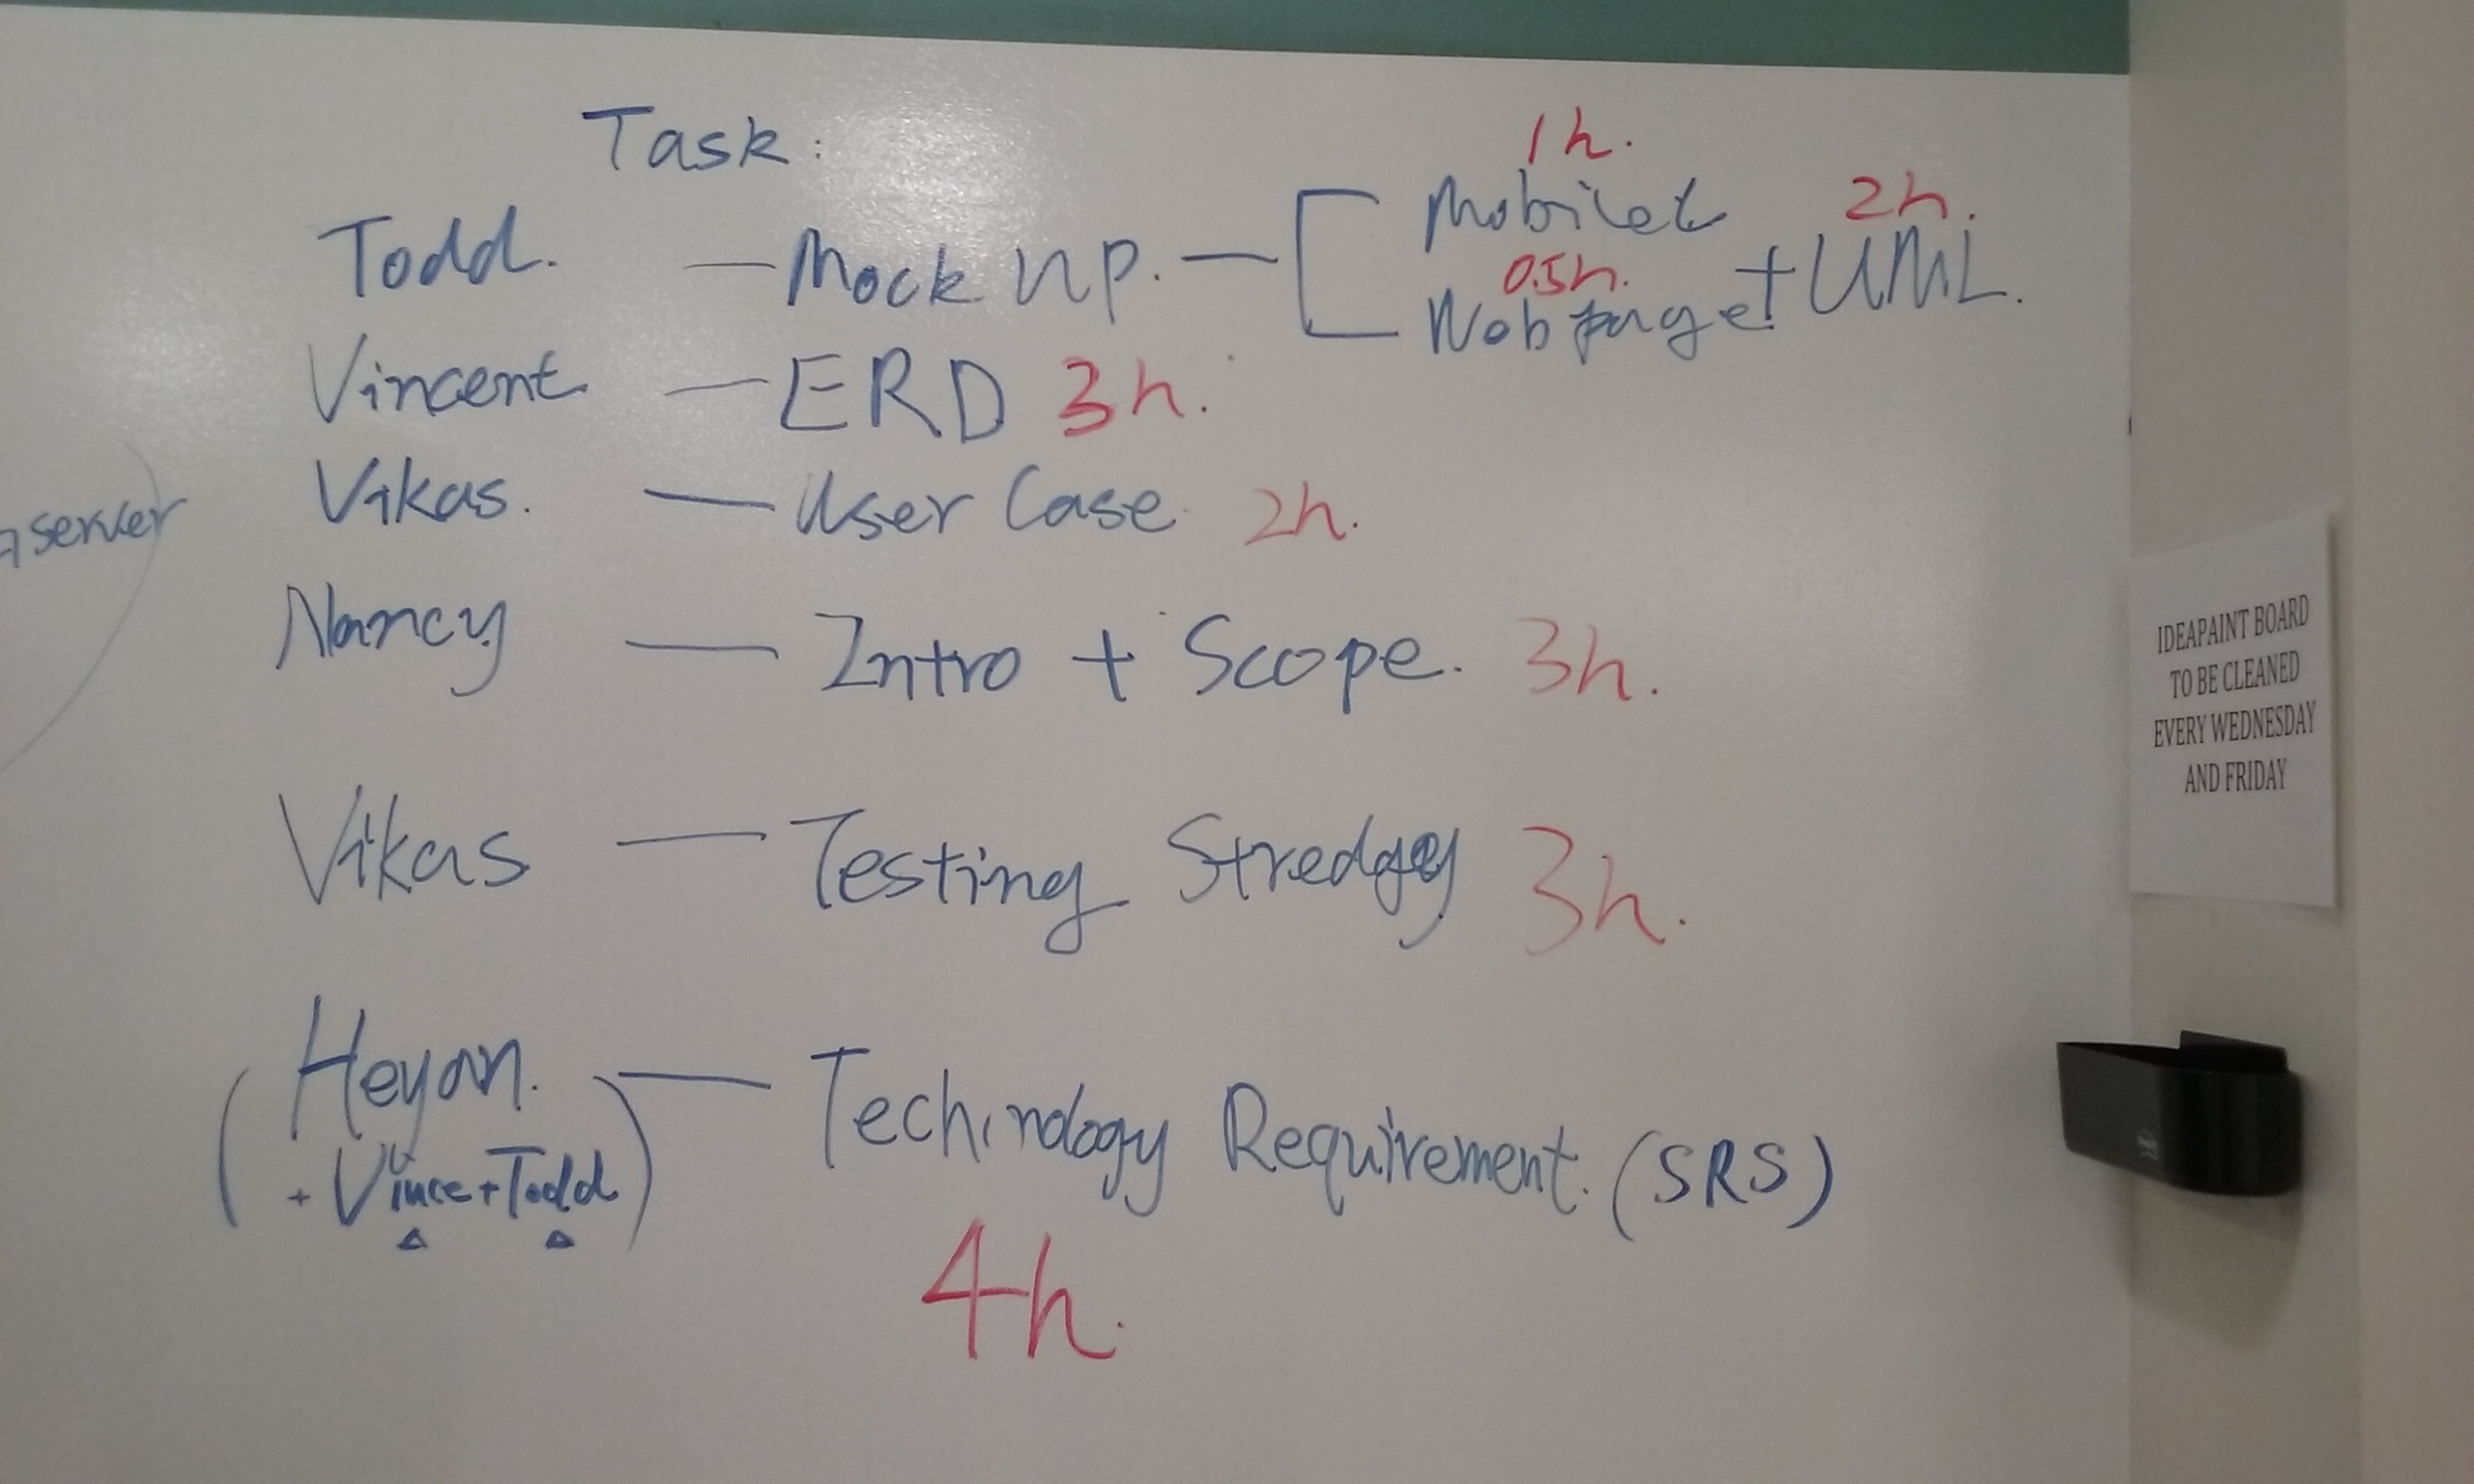 Task:
1h.
Todd. — Mock up. — [ Mobilet 2h.
0.5h.
Web page + UML.
Vincent — ERD 3h.
Vikas. — User Case 2h.
server
Nancy — Intro + Scope. 3h.
Vikas — Testing Stredgy 3h.
Heyan. — Techinology Requirement. (SRS)
(+ Vince + Todd)
4h.
IDEAPAINT BOARD
TO BE CLEANED
EVERY WEDNESDAY
AND FRIDAY